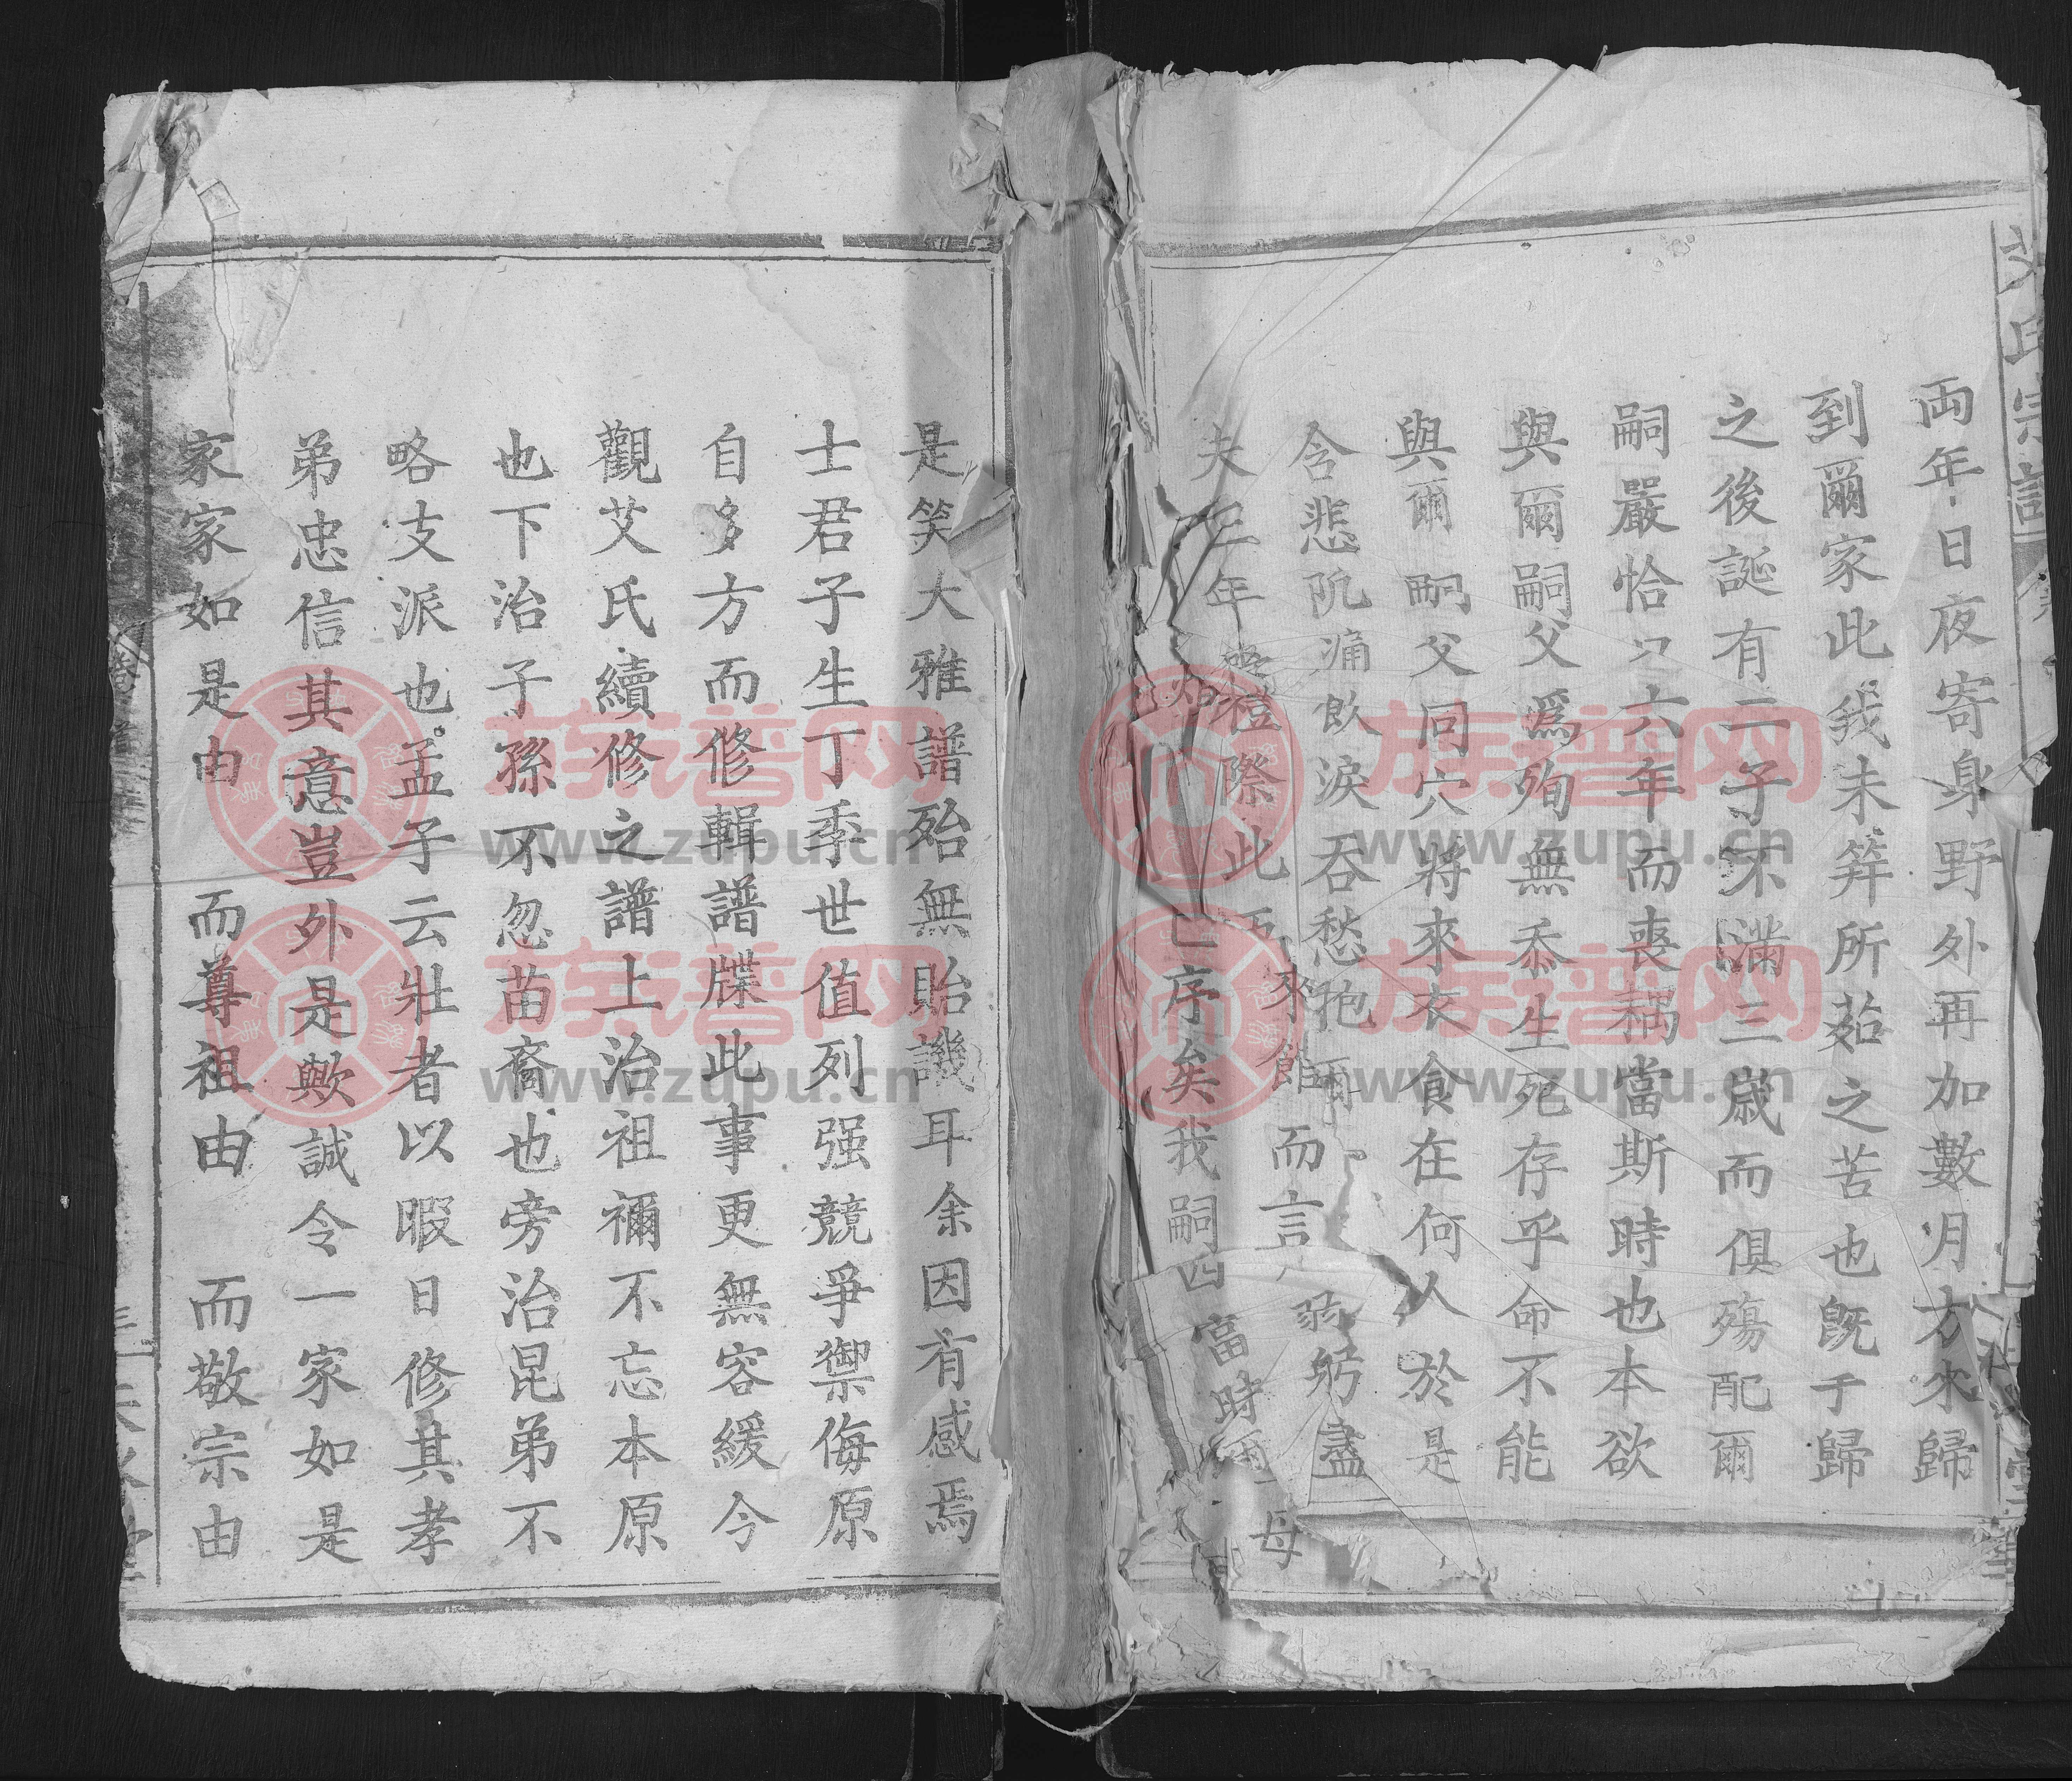 艾氏宗譜
両年日夜寄身野外再加數月方來歸
到爾家此我未筓所茹之苦也旣于歸
之後誕有二子不滿三歲而俱殤配爾
嗣嚴恰只六年而喪耦當斯時也本欲
與爾嗣父爲殉無忝生死存乎命不能
與爾嗣父同穴將來衣食在何人於是
含悲沉痛飲淚吞愁抱
來館而言
弱躬盡
夫三年
禮際此
亡序矣我嗣四
當時爾
母
是笑大雅譜殆無貽譏耳余因有感焉
士君子生丁季世值列强競爭禦侮原
自多方而修輯譜牒此事更無容緩今
觀艾氏續修之譜上治祖禰不忘本原
也下治子孫不忽苗裔也旁治昆弟不
略支派也孟子云壯者以暇日修其孝
弟忠信其意豈外是歟誠令一家如是
家家如是由 而尊祖由 而敬宗由
卷首
族谱网
www.zupu.cn
族谱网
www.zupu.cn
族谱网
www.zupu.cn
族谱网
www.zupu.cn